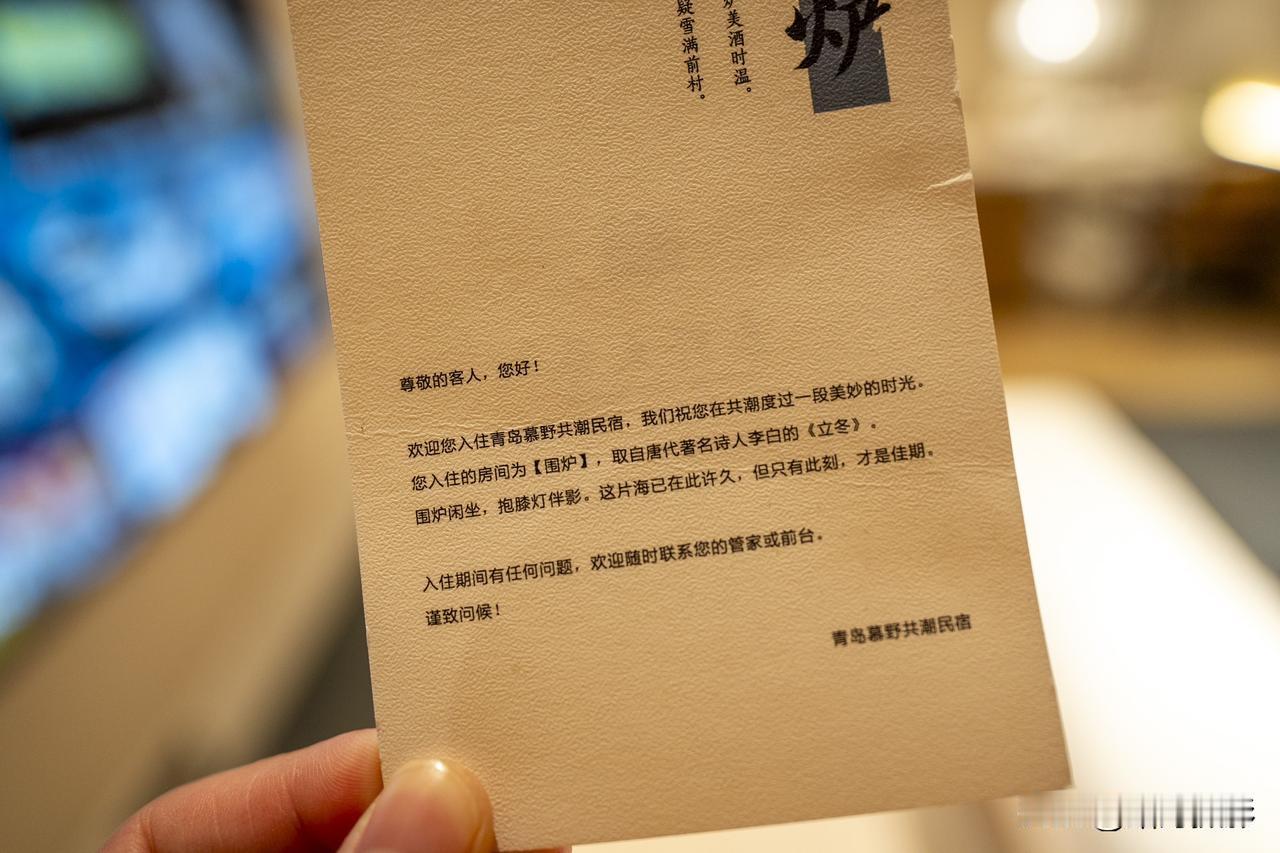 炉
美酒时温。
疑雪满前村。
尊敬的客人，您好！
欢迎您入住青岛慕野共潮民宿，我们祝您在共潮度过一段美妙的时光。
您入住的房间为【围炉】，取自唐代著名诗人李白的《立冬》。
围炉闲坐，抱膝灯伴影。这片海已在此许久，但只有此刻，才是佳期。
入住期间有任何问题，欢迎随时联系您的管家或前台。
谨致问候！
青岛慕野共潮民宿